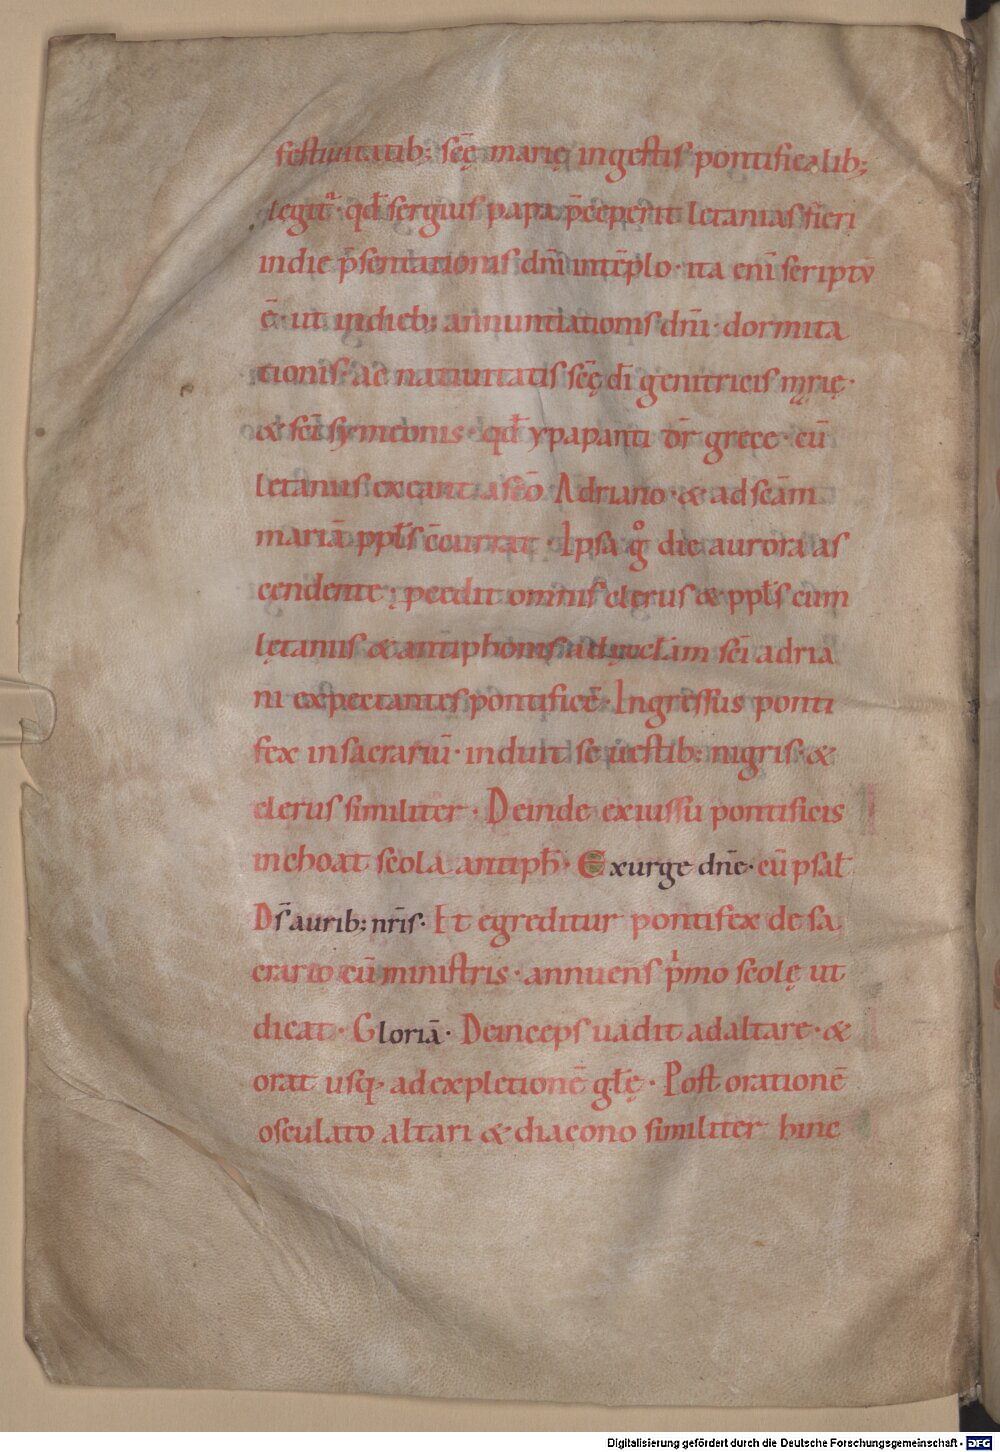 festiuitatib: sc̄ę marię ingestis pontificalib;
lęgitᷓ· qđ sergius papa p̄ceperit letanias fieri
indie p̄sentationis dn̄i intēplo· ita eni̅ scriptū
ē· ut indieb; annuntiationis dn̄i· dormita
tionis· ac natiuitatis sc̄ę dī genitricis mᶒrię·
& sc̄i symeonis· qđ ypapanti dr̄ grece· cū
letaniis exeant asc̄o Adriano· & ad scām
mariā ppl̄s c̄currat· Ipsa gͦ die aurora as
cendente; p̱cedit omnis clerus & ppl̄s cum
lętaniis & antiphonis adęccl̄am sc̄i adria
ni expectantes pontificē· Ingressus ponti
fex insacrariū· induit se uestib: nigris· &
clerus similiter· Deinde exiussu pontificis
inchoat scola antiph̄· Exurge dn̄e· cū psal̄
D̄s aurib: nr̄is· Et egreditur pontifex de sa
crario cū ministris· annuens pⁱmo scolę ut
dicat· Gloriā· Deinceps uadit adaltare· &
orat usq· adexpletionē gl̄ę· Post orationē
osculato altari & diacono similiter hinc
Digitalisierung gefördert durch die Deutsche Forschungsgemeinschaft - DFG